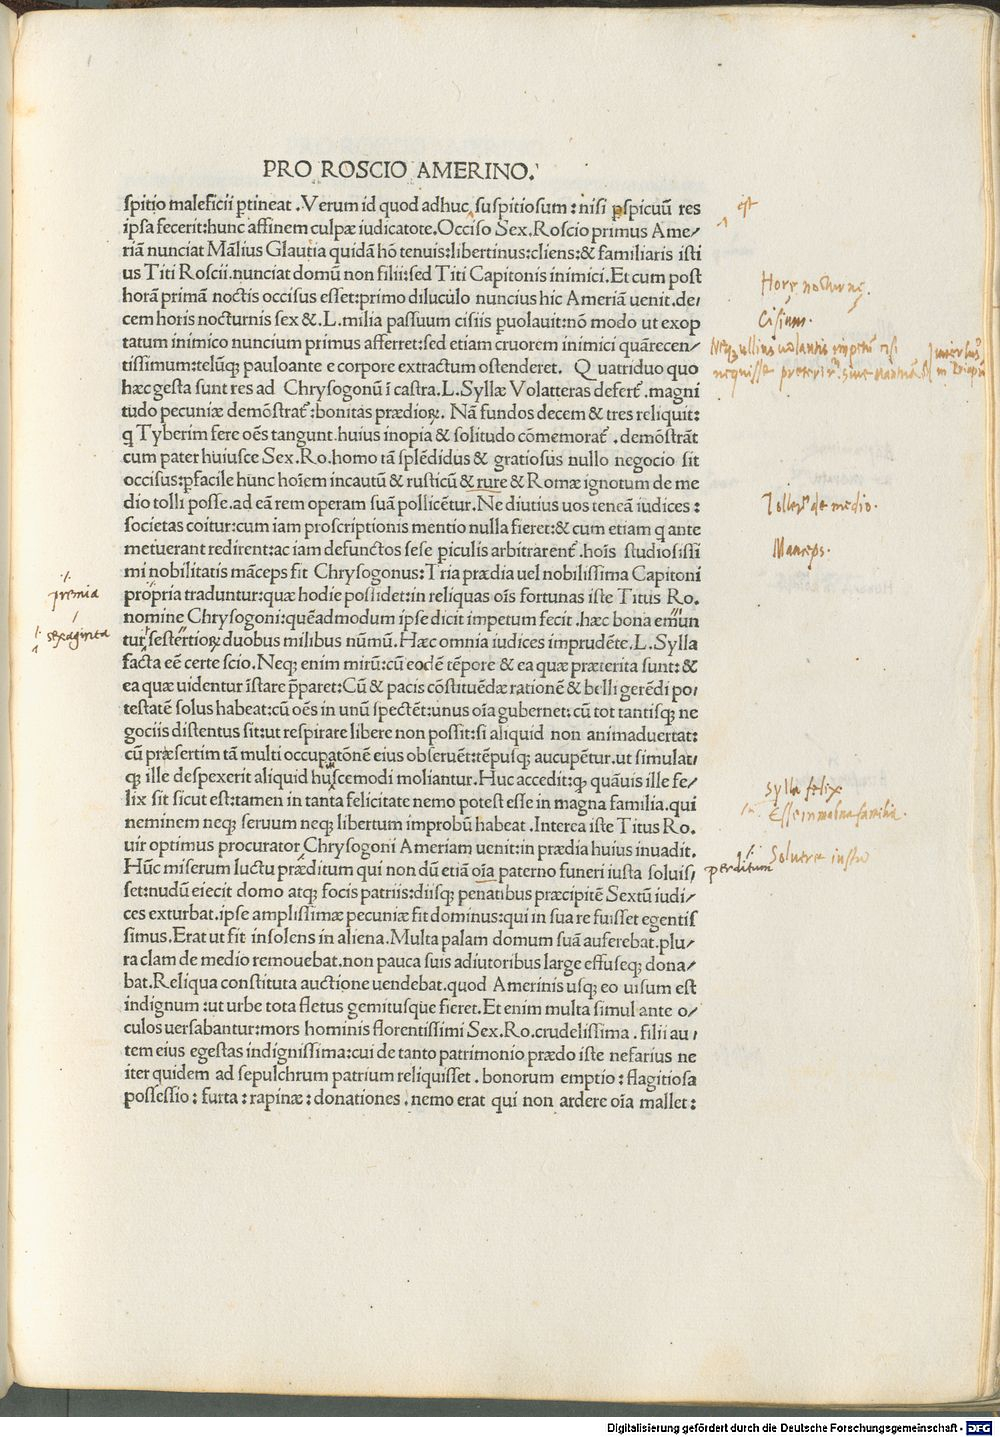 PRO ROSCIO AMERINO.
spitio maleficii ꝑtineat . Verum id quod adhuc suspitiosum : nisi ꝑspicuū res
ipsa fecerit:hunc affinem culpæ iudicatote. Occiso Sex. Roscio primus Ame/
riā nunciat Māllius Glautia quidā hō tenuis:libertinus:cliens:& familiaris isti
us Titi Roscii.nunciat domū non filii:sed Titi Capitonis inimici. Et cum post
horā primā noctis occisus esset:primo diluculo nuncius hic Ameriā uenit.de/
cem horis nocturnis sex &.L.milia passuum cisiis ꝑuolauit:nō modo ut exop
tatum inimico nuncium primus afferret:sed etiam cruorem inimici quārecen/
tissimum:telūq; pauloante e corpore extractum ostenderet. Q uatriduo quo
hæc gesta sunt res ad Chrysogonū ī castra.L.Syllæ Volatteras defert̄ .magni
tudo pecuniæ demōstrat̄ :bonitas prædioꝝ. Nā fundos decem & tres reliquit:
q Tyberim fere oēs tangunt.huius inopia & solitudo cōmemorat̄ .demōstrāt
cum pater huiusce Sex.Ro.homo tā splēdidus & gratiosus nullo negocio sit
occisus:ꝑfacile hunc hoīem incautū & rusticū & rure & Romæ ignotum de me
dio tolli posse.ad eā rem operam suā pollicētur. Ne diutius uos teneā iudices :
societas coitur:cum iam proscriptionis mentio nulla fieret:& cum etiam q ante
metuerant redirent:ac iam defunctos sese ꝑiculis arbitrarent̄ .hoīs studiosissi
mi nobilitatis māceps fit Chrysogonus:Tria prædia uel nobilissima Capitoni
propria traduntur:quæ hodie possidet:in reliquas oīs fortunas iste Titus Ro.
nomine Chrysogoni:quēadmodum ipse dicit impetum fecit .hæc bona emun
tur sestertioꝝ duobus milibus nūmū. Hæc omnia iudices imprudēte.L.Sylla
facta eē certe scio. Neq; enim mirū:cū eodē tēpore & ea quæ præterita sunt: &
ea quæ uidentur īstare p̄paret:Cū & pacis cōstituēdæ rationē & belli gerēdi po/
testatē solus habeat:cū oēs in unū spectēt:unus oīa gubernet:cū tot tantisq; ne
gociis distentus sit:ut respirate libere non possit:si aliquid non animaduertat:
cū præsertim tā multi occupatōnē eius obseruēt:tēpusq; aucupētur.ut simulat/
q; ille despexerit aliquid huscemodi moliantur. Huc accedit:q; quāuis ille fe/
lix sit sicut est:tamen in tanta felicitate nemo potest esse in magna familia.qui
neminem neq; seruum neq; libertum improbū habeat . Interea iste Titus Ro.
uir optimus procurator Chrysogoni Ameriam uenit:in prædia huius inuadit.
Hūc miserum luctu præditum qui non dū etiā oīa paterno funeri iusta soluis/
set:nudū eiecit domo atq; focis patriis:diisq; penatibus præcipitē Sextū iudi/
ces exturbat.ipse amplissimæ pecuniæ fit dominus:qui in sua re fuisset egentis
simus. Erat ut fit insolens in aliena. Multa palam domum suā auferebat.plu/
ra clam de medio remouebat.non pauca suis adiutoribus large effuseq; dona/
bat. Reliqua constituta auctione uendebat.quod Amerinis usq; eo uisum est
indignum :ut urbe tota fletus gemitusque fieret. Et enim multa simul ante o/
culos uersabantur:mors hominis florentissimi Sex.Ro.crudelissima . filii au/
tem eius egestas indignissima:cui de tanto patrimonio prædo iste nefarius ne
iter quidem ad sepulchrum patrium reliquisset . bonorum emptio : flagitiosa
possessio : furta : rapinæ : donationes . nemo erat qui non ardere oīa mallet :
est
Horę nocturnę.
Cisium.
Tollere de medio.
Manceps.
premia
sexaginta
Sylla felix
Esse in magna familia.
Soluere iusta
perditum
Digitalisierung gefördert durch die Deutsche Forschungsgemeinschaft - DFG